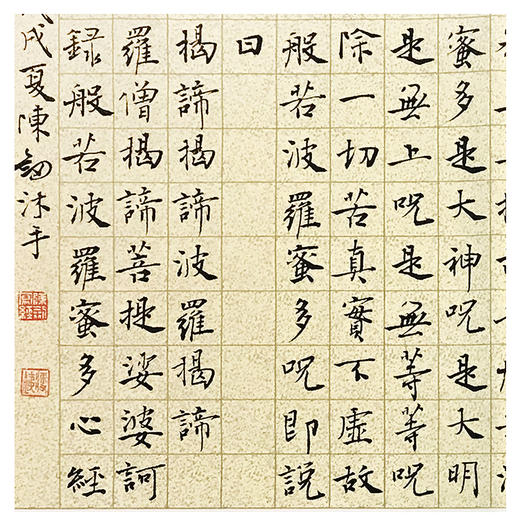 蜜多是大神呪是大明
是無上呪是無等等呪
除一切苦真實不虛故
般若波羅蜜多呪即說
曰
揭諦揭諦波羅揭諦
羅僧揭諦菩提娑婆訶
録般若波羅蜜多心經
戌夏陳劔沐手